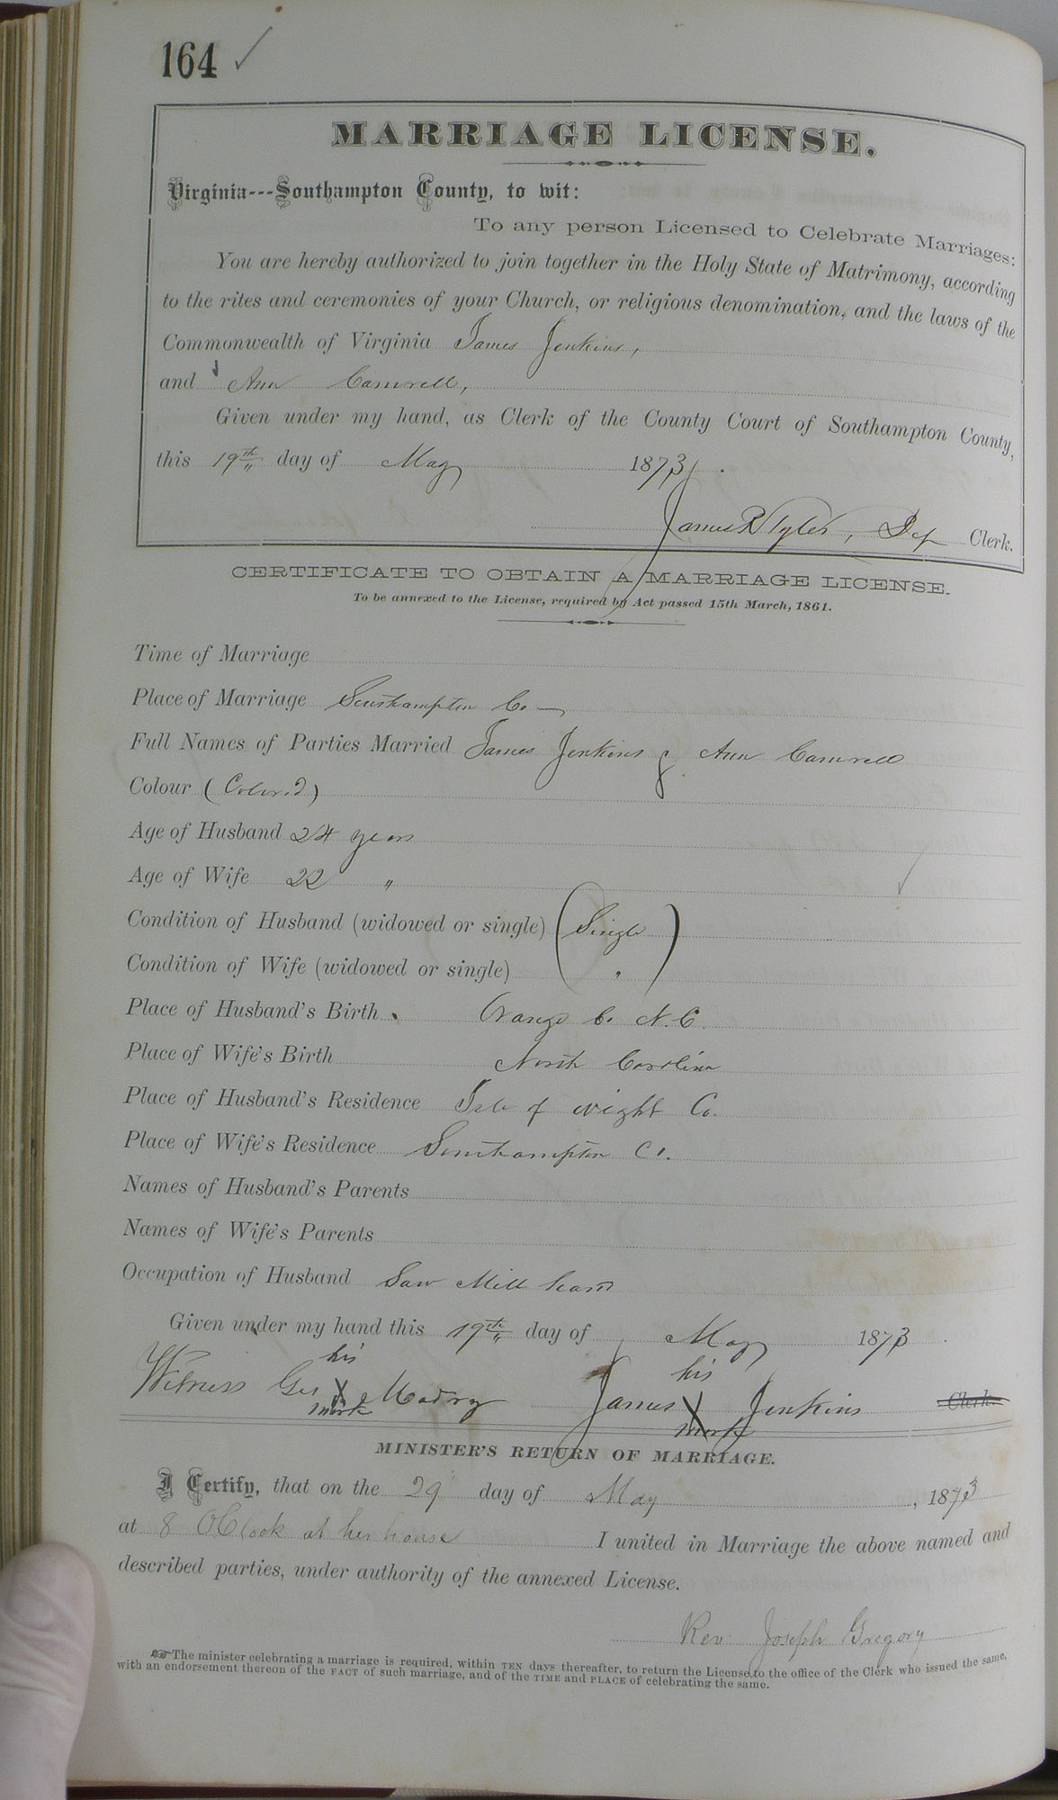 164 ✓
MARRIAGE LICENSE.
Virginia---Southampton County, to wit:
To any person Licensed to Celebrate Marriages:
You are hereby authorized to join together in the Holy State of Matrimony, according
to the rites and ceremonies of your Church, or religious denomination, and the laws of the
Commonwealth of Virginia James Jenkins,
and Ann Camrell,
Given under my hand, as Clerk of the County Court of Southampton County,
this 19th day of May 1873.
James R Tyler, Dep Clerk.
CERTIFICATE TO OBTAIN A MARRIAGE LICENSE.
To be annexed to the License, required by Act passed 15th March, 1861.
Time of Marriage
Place of Marriage Southampton Co
Full Names of Parties Married James Jenkins & Ann Camrell
Colour (Colored)
Age of Husband 24 years
Age of Wife 22 "
Condition of Husband (widowed or single) (Single
Condition of Wife (widowed or single) " )
Place of Husband's Birth Orange Co N.C.
Place of Wife's Birth North Carolina
Place of Husband's Residence Isle of wight Co.
Place of Wife's Residence Southampton Co.
Names of Husband's Parents
Names of Wife's Parents
Occupation of Husband Saw Mill hand
Given under my hand this 19th day of May 1873.
his his
Witness Geo X Madry James X Jenkins Clerk.
mark mark
MINISTER'S RETURN OF MARRIAGE.
I Certify, that on the 29 day of May, 1873
at 8 OClock at her house I united in Marriage the above named and
described parties, under authority of the annexed License.
Rev Joseph Gregory
The minister celebrating a marriage is required, within TEN days thereafter, to return the License to the office of the Clerk who issued the same,
with an endorsement thereon of the FACT of such marriage, and of the TIME and PLACE of celebrating the same.